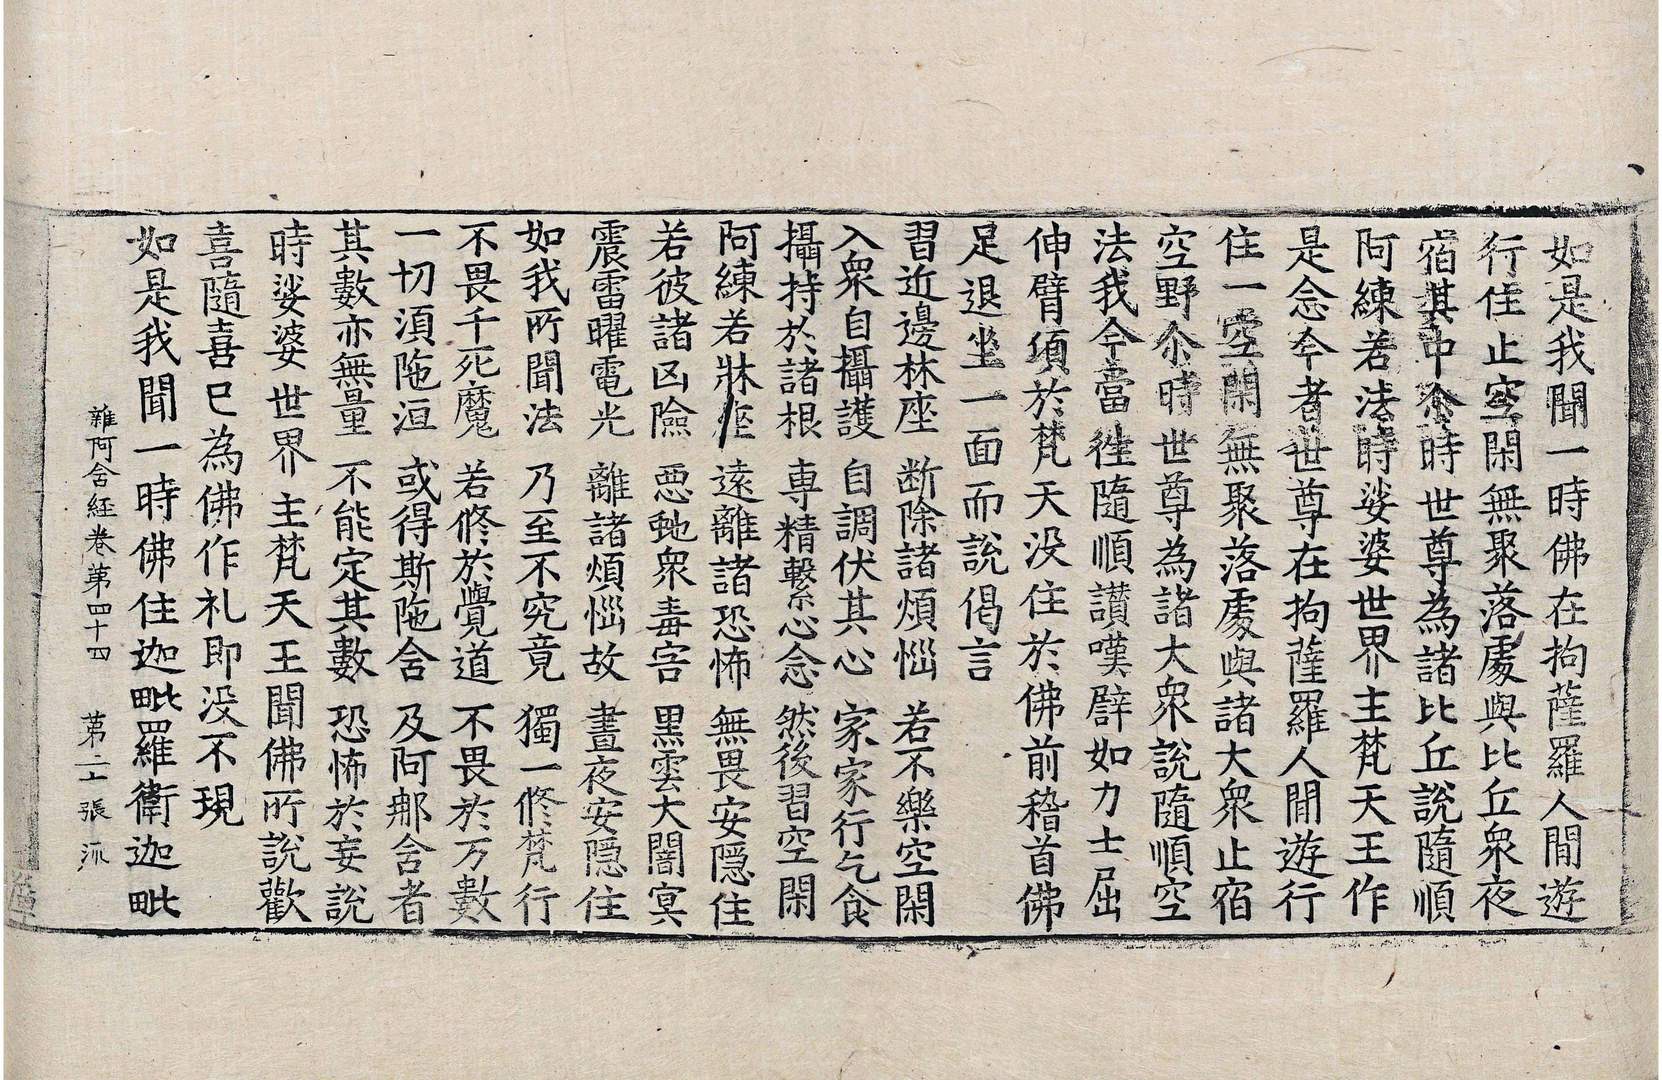 如是我聞一時佛在拘薩羅人間遊
行住止空閑無聚落處與比丘衆夜
宿其中尒時世尊為諸比丘說隨順
阿練若法時娑婆世界主梵天王作
是念今者世尊在拘薩羅人間遊行
住一空閑無聚落處與諸大衆止宿
空野尒時世尊為諸大衆說隨順空
法我今當往隨順讃嘆譬如力士屈
伸臂須於梵天没住於佛前稽首佛
足退坐一面而說偈言
習近邊林座 断除諸煩惱 若不樂空閑
入衆自攝護 自調伏其心 家家行乞食
攝持於諸根 専精繫心念 然後習空閑
阿練若牀座 遠離諸恐怖 無畏安隠住
若彼諸凶險 惡虵衆毒害 黒雲大闇冥
震雷曜電光 離諸煩惱故 晝夜安隠住
如我所聞法 乃至不究竟 獨一修梵行
不畏千死魔 若修於覺道 不畏於万數
一切須陁洹 或得斯陁含 及阿那含者
其數亦無量 不能定其數 恐怖於妄說
時娑婆世界主梵天王聞佛所說歡
喜隨喜已為佛作礼即没不現
如是我聞一時佛住迦毗羅衛迦毗
雜阿含経卷第四十四 第二十張 派